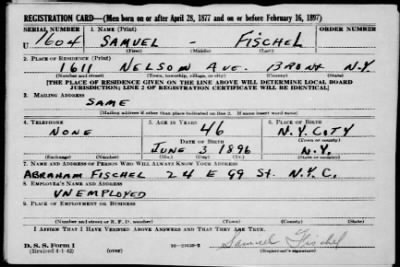 REGISTRATION CARD—(Men born on or after April 28, 1877 and on or before February 16, 1897)
SERIAL NUMBER 1. NAME (Print) ORDER NUMBER
U 1604 SAMUEL - FISCHEL
(First) (Middle) (Last)
2. PLACE OF RESIDENCE (Print)
1611 NELSON AVE. BRONX N.Y.
(Number and street) (Town, township, village, or city) (County) (State)
[THE PLACE OF RESIDENCE GIVEN ON THE LINE ABOVE WILL DETERMINE LOCAL BOARD
JURISDICTION; LINE 2 OF REGISTRATION CERTIFICATE WILL BE IDENTICAL]
3. MAILING ADDRESS
SAME
[Mailing address if other than place indicated on line 2. If same insert word same]
4. TELEPHONE 5. AGE IN YEARS 6. PLACE OF BIRTH
NONE 46 N.Y. CITY
DATE OF BIRTH (Town or county)
JUNE 3 1896 N.Y.
(Exchange) (Number) (Mo.) (Day) (Yr.) (State or country)
7. NAME AND ADDRESS OF PERSON WHO WILL ALWAYS KNOW YOUR ADDRESS
ABRAHAM FISCHEL 24 E 99 ST. N.Y.C.
8. EMPLOYER'S NAME AND ADDRESS
UNEMPLOYED
9. PLACE OF EMPLOYMENT OR BUSINESS
(Number and street or R. F. D. number) (Town) (County) (State)
I AFFIRM THAT I HAVE VERIFIED ABOVE ANSWERS AND THAT THEY ARE TRUE.
D. S. S. Form 1 Samuel Fischel
(Revised 4-1-42) (Registrant's signature)